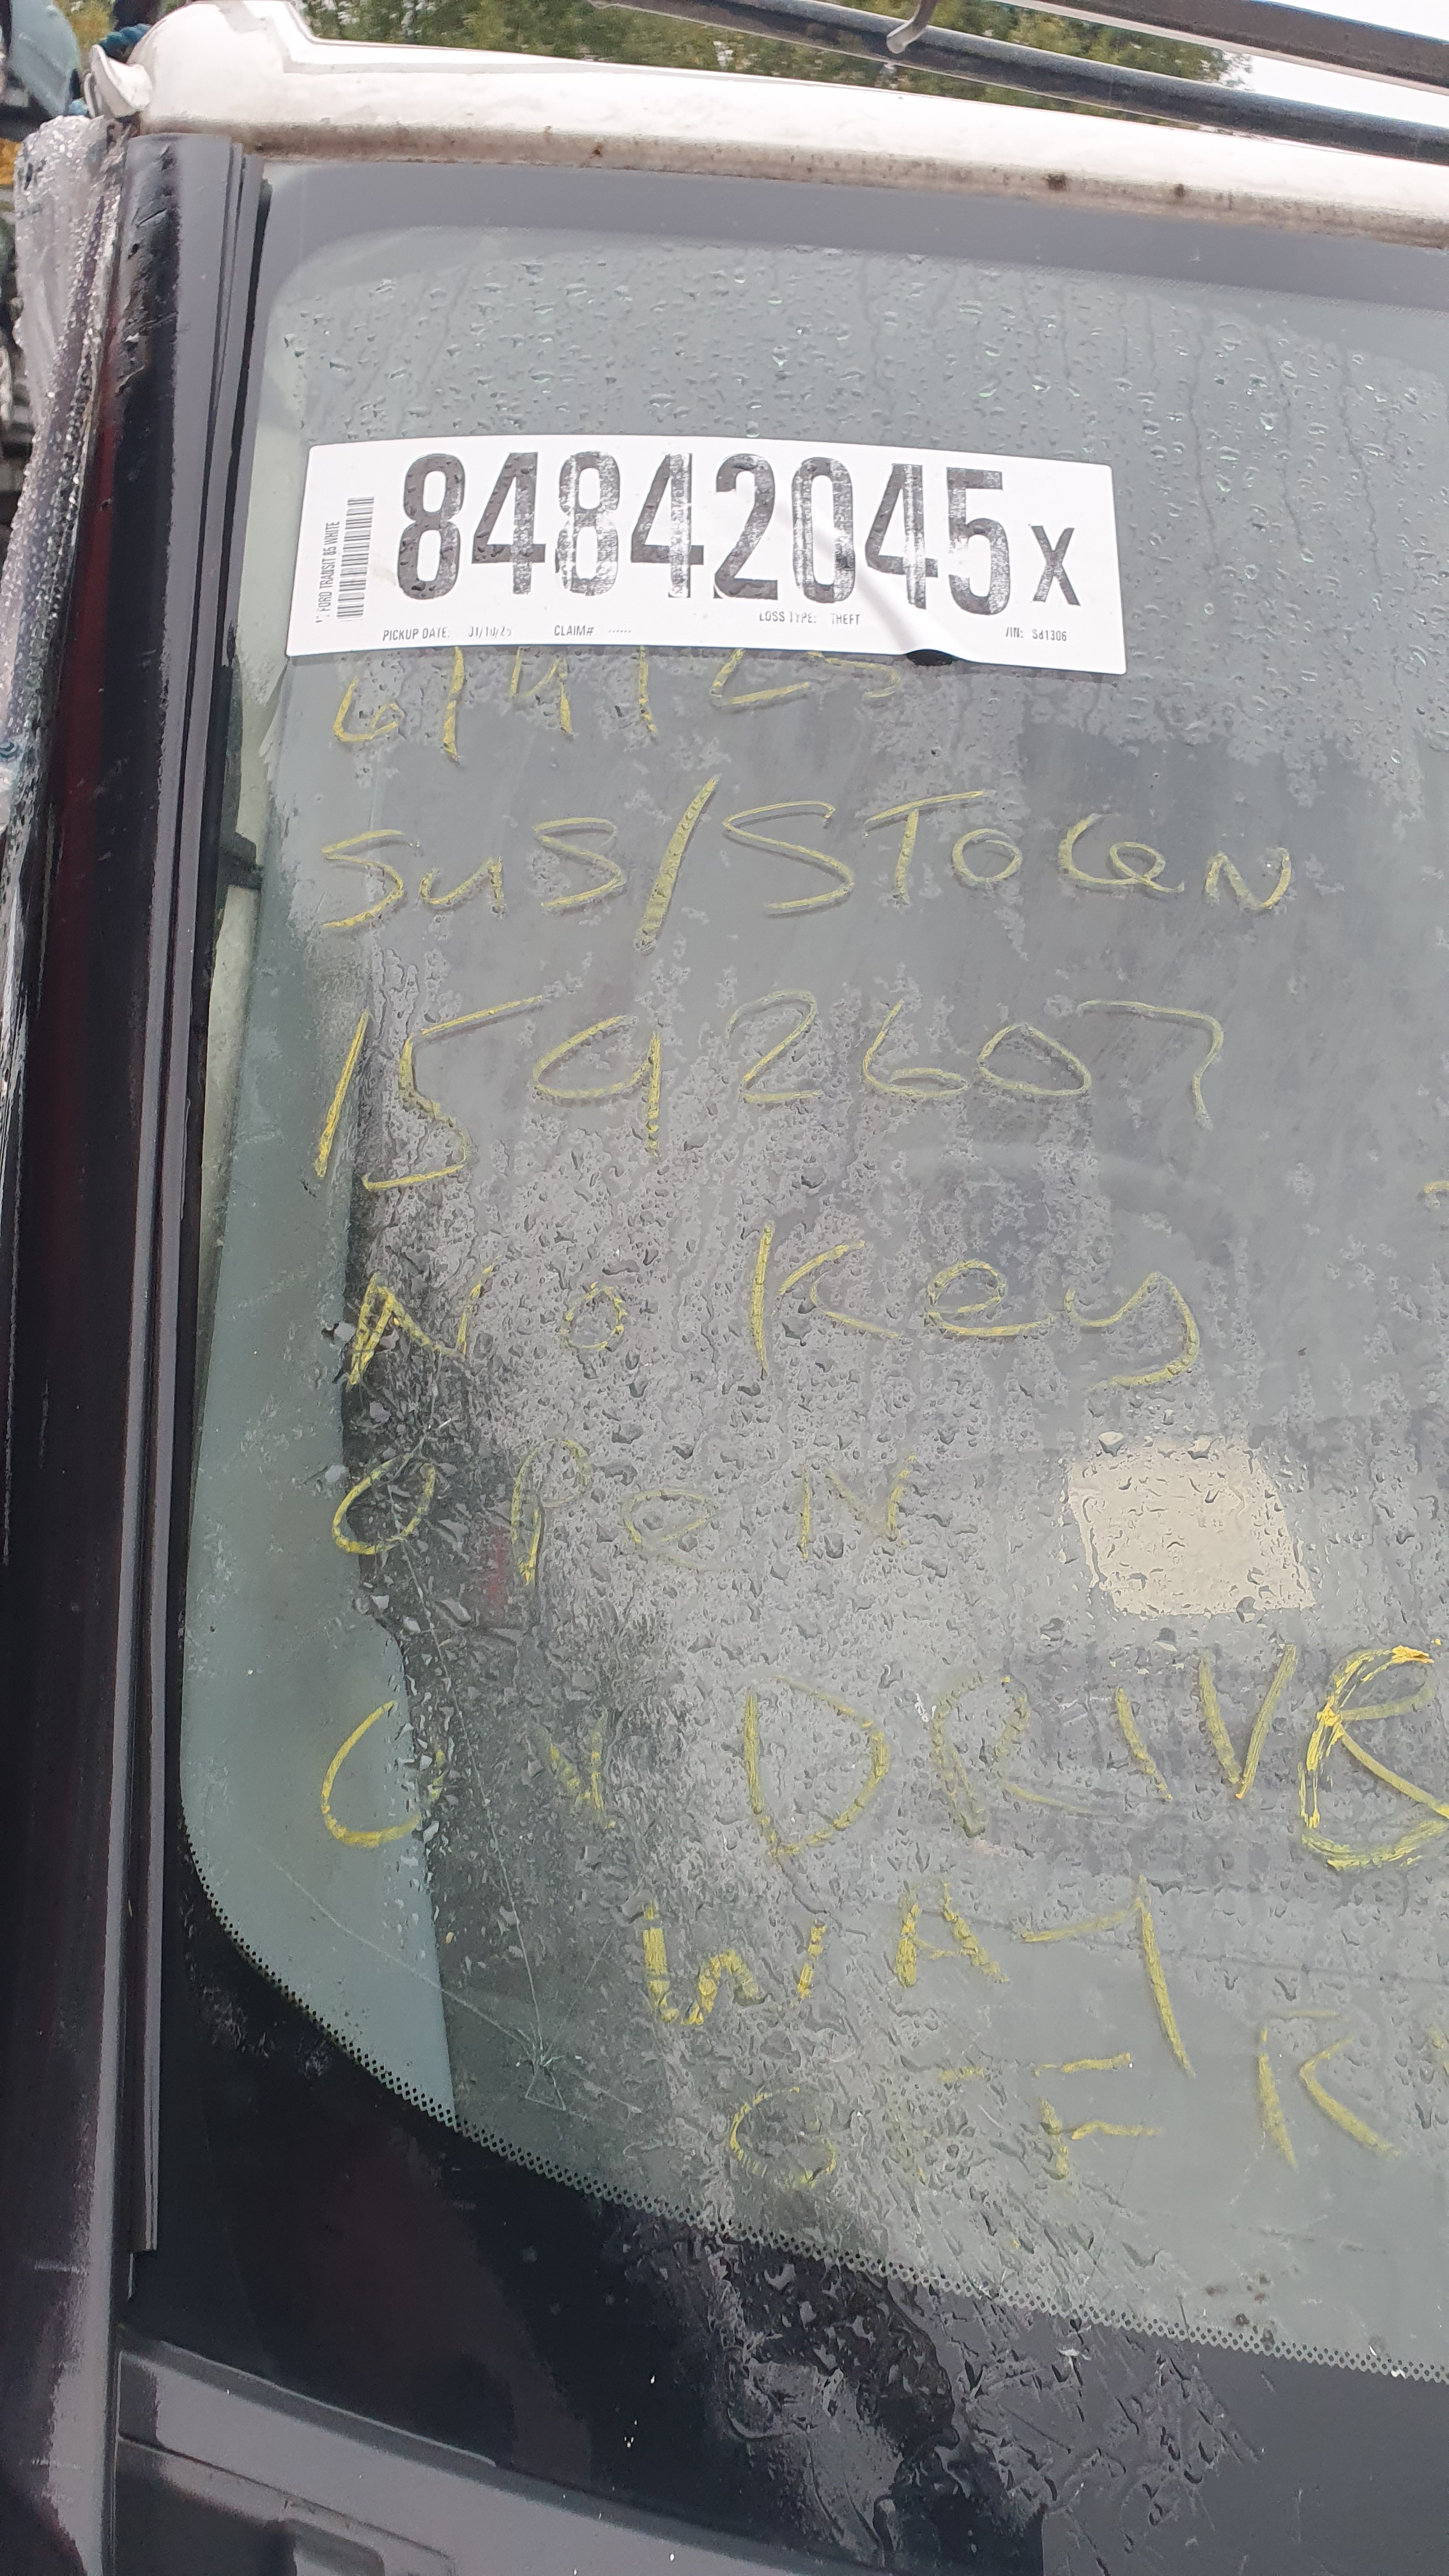 84842045 X
FORD TRANSIT 85 WHITE
PICKUP DATE: 01/10/25 CLAIM# ------ LOSS TYPE: THEFT VIN: S81306
6/4/25
SUS/STOLEN
1592607
No Key
OPEN
ON DRIVE
WAY
OFF